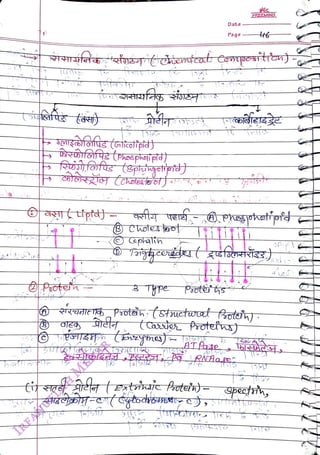 Date
Page 46
→ रासायनिक संगठन (Chemical Composition) -
रासायनिक संगठन
लिपिड (वसा) प्रोटीन कार्बोहाइड्रेट
→ ग्लाइकोलिपिड (Glicolipid)
→ फॉस्फोलिपिड (Phospholipid)
→ स्फिंगोलिपिड (Sphingolipid)
→ कोलेस्ट्रॉल (Cholesterol)
① वसा (Lipid) - वसीय पदार्थ Ⓐ phospholipid
Ⓑ Cholesterol
Ⓒ Cephalin
Ⓓ Triglycerides (ट्राइग्लिसराॅइड)
② Protein - 3 Type Proteins
Ⓐ संरचनात्मक Protein (Structural Protein)
Ⓑ वाहक प्रोटीन (Carrier Proteins)
Ⓒ एन्जाइम (Enzymes) -
ATPase, फॉस्फेटेज,
RNAase
(i) बाह्य प्रोटीन (Extrinsic Protein) - Spectrin,
साइटोक्रोम-c (Cytochrome-c),